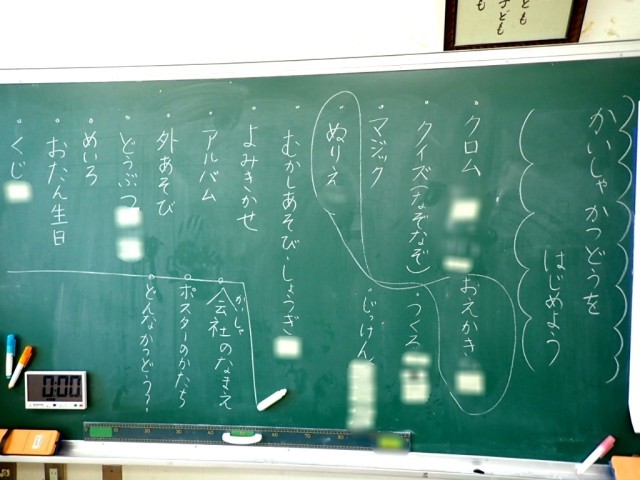 かいしゃかつどうを
はじめよう
・クロム
・おえかき
・クイズ(なぞなぞ)
・つくろ
・マジック
・じっけん
・ぬりえ
・むかしあそび・しょうぎ
・よみきかせ
・アルバム
・外あそび
・どうぶつ
・めいろ
・おたん生日
・くじ
かいしゃ
・会社のなまえ
・ポスターのかたち
・どんなかつどう?
0:00